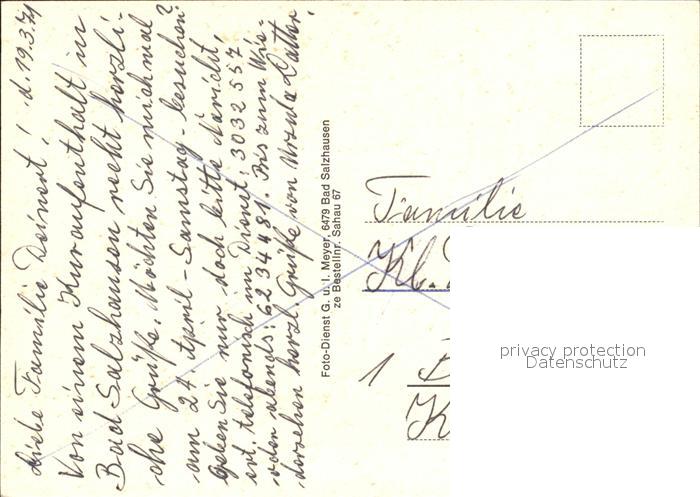 Liebe Familie Deinert, ! d. 19.3.71
Von einem Kuraufenthalt in
Bad Salzhausen recht herzli-
che Grüße. Möchten Sie mich mal
am 24 April - Samstag - besuchen?
Geben Sie mir doch bitte Naricht,
evt. telefonisch im Dienst: 3032557
oden abends: 6234481. Bis zum Wie-
dersehen herzl. Grüße von Ursula
Foto-Dienst G. u. I. Meyer, 6479 Bad Salzhausen
ze Bestellnr. Sahau 67
Familie
Kl.
1
K
privacy protection
Datenschutz